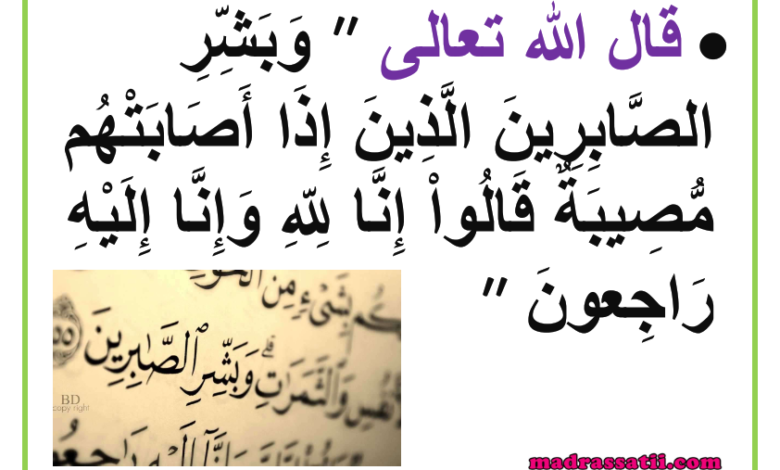 ● قال الله تعالى " وَبَشِّرِ
الصَّابِرِينَ الَّذِينَ إِذَا أَصَابَتْهُم
مُّصِيبَةٌ قَالُواْ إِنَّا لِلّهِ وَإِنَّا إِلَيْهِ
رَاجِعونَ "
بِشَىْءٍ مِّنَ الْخَوْفِ
وَالثَّمَرَٰتِ ۗ وَبَشِّرِ ٱلصَّٰبِرِينَ
BD
copy right
madrassatii.com